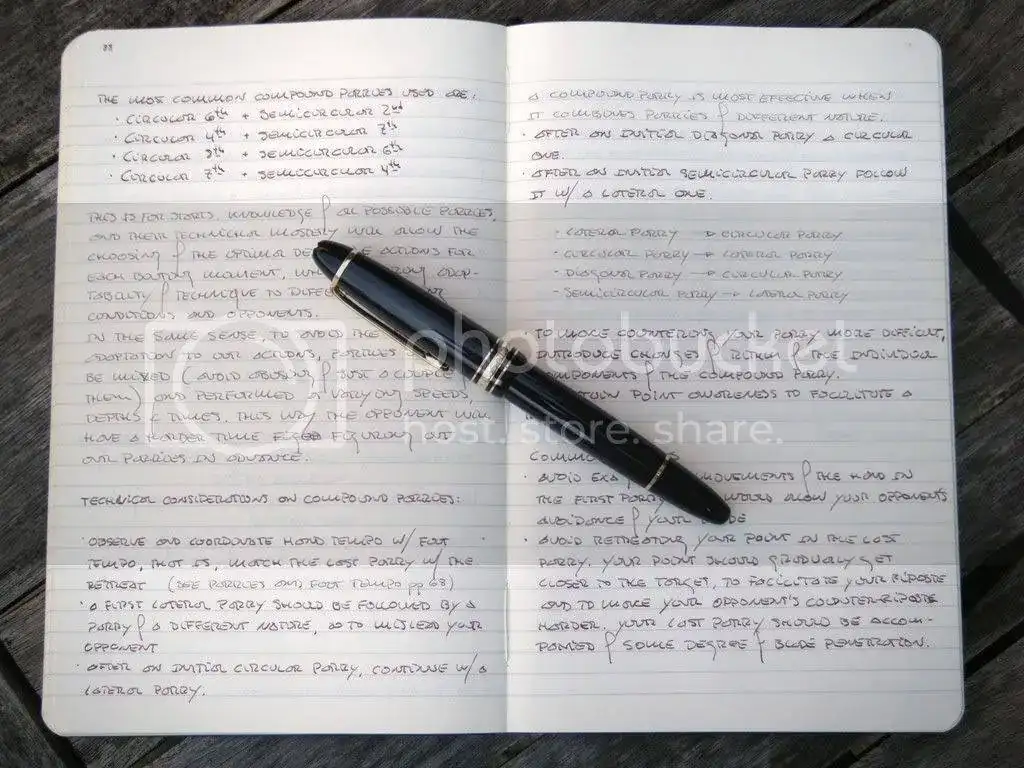 88
THE MOST COMMON COMPOUND PARRIES USED ARE:
· CIRCULAR 6th + SEMICIRCULAR 2nd
· CIRCULAR 4th + SEMICIRCULAR 7th
· CIRCULAR 8th + SEMICIRCULAR 6th
· CIRCULAR 7th + SEMICIRCULAR 4th
THIS IS FOR STARTS. KNOWLEDGE OF ALL POSSIBLE PARRIES,
AND THEIR TECHNICAL MASTERY WILL ALLOW THE
CHOOSING OF THE OPTIMAL DE ACTIONS FOR
EACH BOUTING MOMENT, ADAP-
TABILITY OF TECHNIQUE TO
CONDITIONS AND OPPONENTS.
IN THE SAME SENSE, TO AVOID THE
ADAPTATION TO OUR ACTIONS, PARRIES
BE MIXED (AVOID ABUSING OF JUST A COUPLE
THEM) AND PERFORMED VARYING SPEEDS,
DEPTHS & TIMES. THIS WAY THE OPPONENT WILL
HAVE A HARDER TIME FIGURING OUT
OUR PARRIES IN ADVANCE.
TECHNICAL CONSIDERATIONS ON COMPOUND PARRIES:
· OBSERVE AND COORDINATE HAND TEMPO W/ FOOT
TEMPO, THAT IS, MATCH THE LAST PARRY W/ THE
RETREAT (SEE PARRIES AND FOOT TEMPO pp 68)
· A FIRST LATERAL PARRY SHOULD BE FOLLOWED BY A
PARRY OF A DIFFERENT NATURE, AS TO MISLEAD YOUR
OPPONENT
· AFTER AN INITIAL CIRCULAR PARRY, CONTINUE W/ A
LATERAL PARRY.
A COMPOUND PARRY IS MOST EFFECTIVE WHEN
IT COMBINES PARRIES OF DIFFERENT NATURE.
· AFTER AN INITIAL DIAGONAL PARRY A CIRCULAR
ONE.
· AFTER AN INITIAL SEMICIRCULAR PARRY FOLLOW
IT W/ A LATERAL ONE.
· LATERAL PARRY → CIRCULAR PARRY
· CIRCULAR PARRY → LATERAL PARRY
· DIAGONAL PARRY → CIRCULAR PARRY
· SEMICIRCULAR PARRY → LATERAL PARRY
· TO MAKE COUNTERING YOUR PARRY MORE DIFFICULT,
INTRODUCE CHANGES OF RITHM OF THE INDIVIDUAL
COMPONENTS OF THE COMPOUND PARRY.
POINT AWARENESS TO FACILITATE A
COMMO
· AVOID MOVEMENTS OF THE HAND IN
THE FIRST PARRY WOULD ALLOW YOUR OPPONENTS
AVOIDANCE OF YOUR
· AVOID RETREATING YOUR POINT IN THE LAST
PARRY. YOUR POINT SHOULD GRADUALLY GET
CLOSER TO THE TARGET, TO FACILITATE YOUR RIPOSTE
AND TO MAKE YOUR OPPONENT'S COUNTER-RIPOSTE
HARDER. YOUR LAST PARRY SHOULD BE ACCOM-
PANIED OF SOME DEGREE OF BLADE PENETRATION.
photobucket
host. store. share.